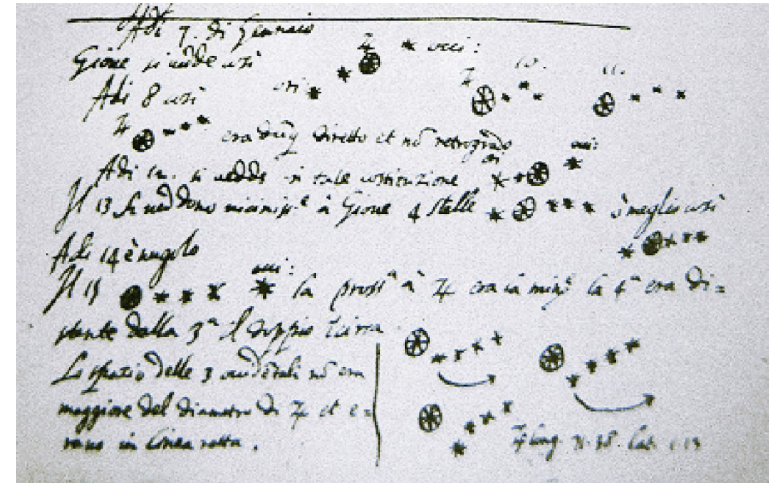 Adi 7. di Gennaio
Gioue si uedde così ori: ♃ occi:
Adi 8 così ♃ 10. 11.
♃ era dūq; diretto et nō retrogrado
Adi 12. si uedde in tale costituzione ori occi:
Il 13 si ueddono à Gioue 4 stelle ò meglio così
Adi 14 è nugolo
Il 15 occi: la pross.ª à ♃ era la min.ª la 4.ª era di=
stante dalla 3.ª il doppio circa
Lo spazio delle 3 occidētali nō era
maggiore del diametro di ♃ et e=
rano in linea retta.
♃ long. 71.38. lat. 1.13